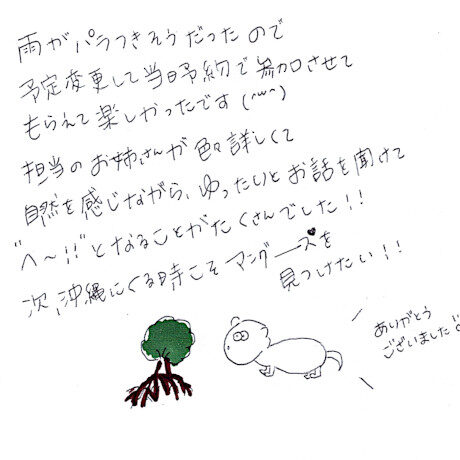 雨がパラつきそうだったので
予定変更して当日予約で参加させて
もらえて楽しかったです(^w^)
担当のお姉さんが色々詳しくて
自然を感じながら、ゆったりとお話を聞けて
"へ〜!!"となることがたくさんでした!!
次、沖縄にくる時こそマングースを
見つけたい!!
ありがとう
ございました!!